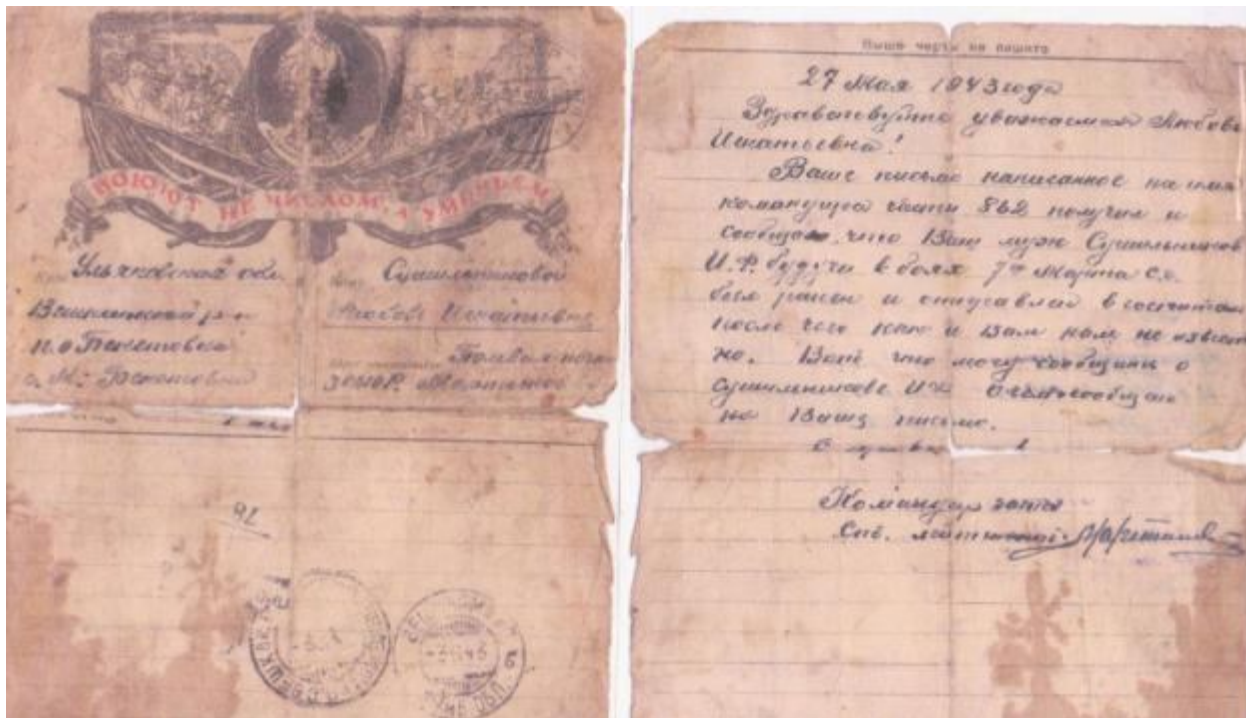 ВОЮЮТ НЕ ЧИСЛОМ, А УМЕНЬЕМ
Ульяновская обл.
Сушильниковой
Любовь Игнатьевне
п.о Бекетовка
с. М. Бекетовка
Полевая почта
Мартынов
92
Выше черты не писать
27 Мая 1943 года
Здравствуйте уважаемая Любовь
Игнатьевна!
Ваше письмо написанное на имя
командира части 862 получил и
сообщаю, что Ваш муж Сушильников
И.Ф. будучи в боях 7го Марта с.г.
был ранен и отправлен в госпиталь
после чего как и Вам нам не извест
но. Вот что могу сообщить о
Сушильникове И.Ф.
на Ваше письмо.
С приветом
Командир роты
Ст. лейтенант Мартынов